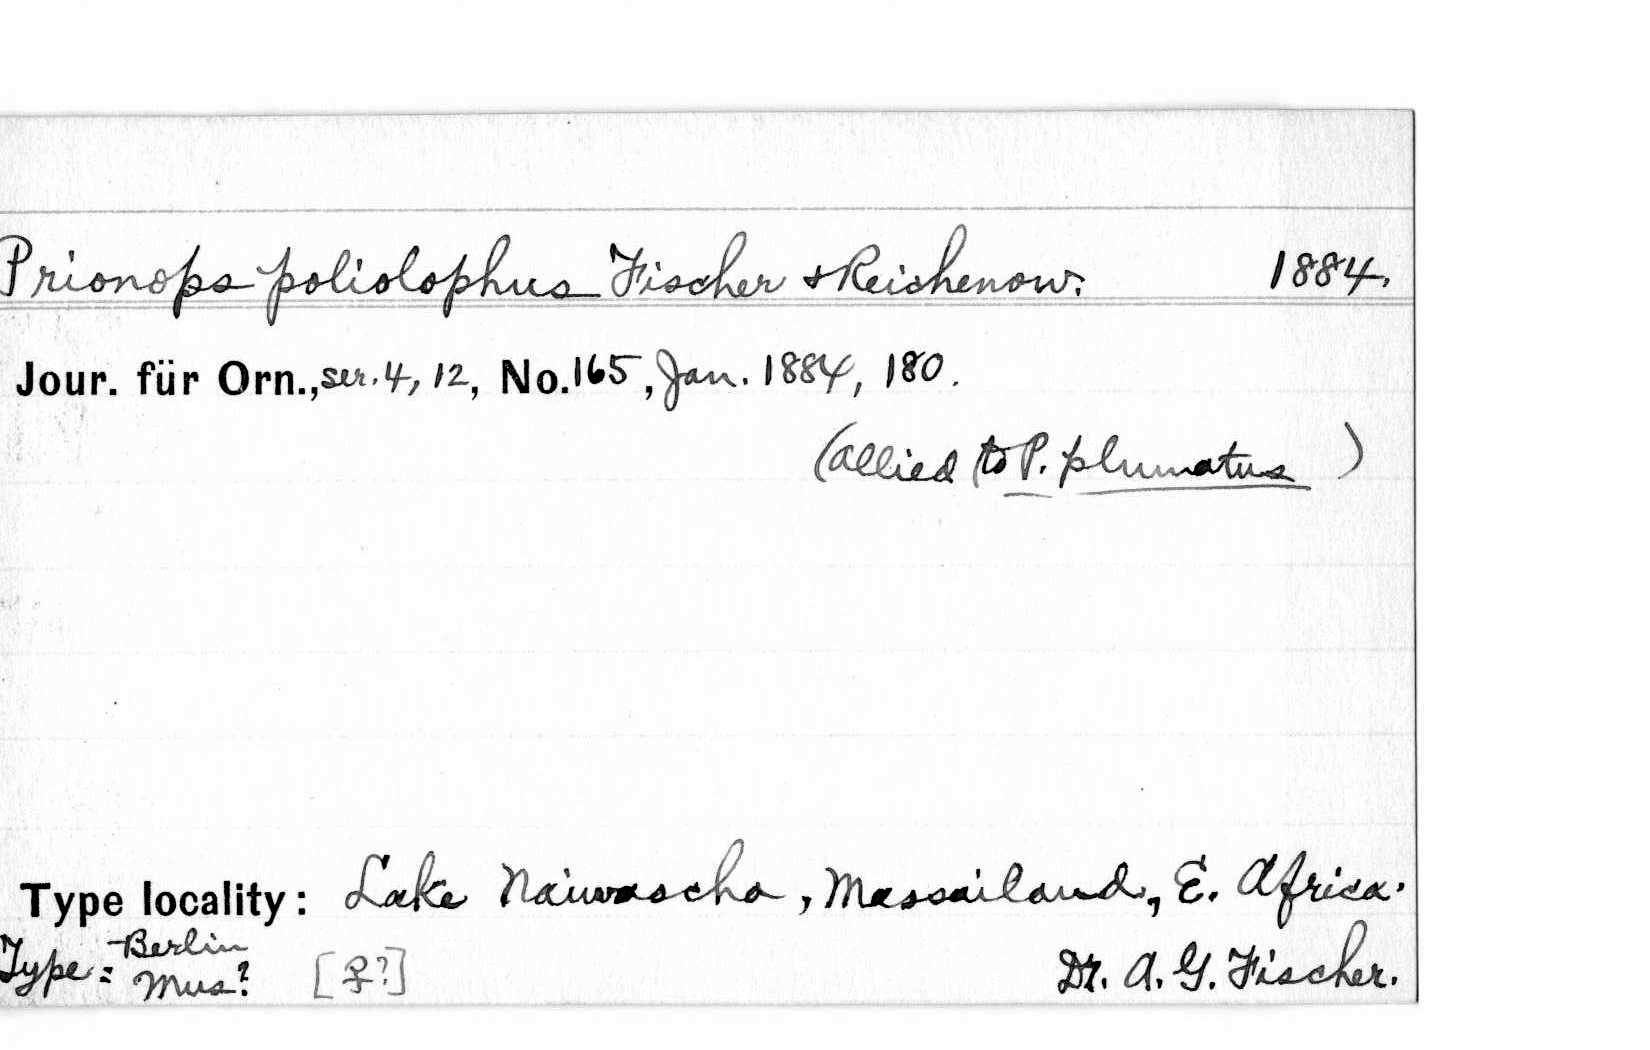 Prionops poliolophus Fischer & Reichenow. 1884.
Jour. für Orn., ser. 4, 12, No. 165, Jan. 1884, 180.
(allied to P. plumatus )
Type locality: Lake Naiwascha, Massailand, E. Africa.
Type: Berlin Mus? [♀?] Dr. A. G. Fischer.